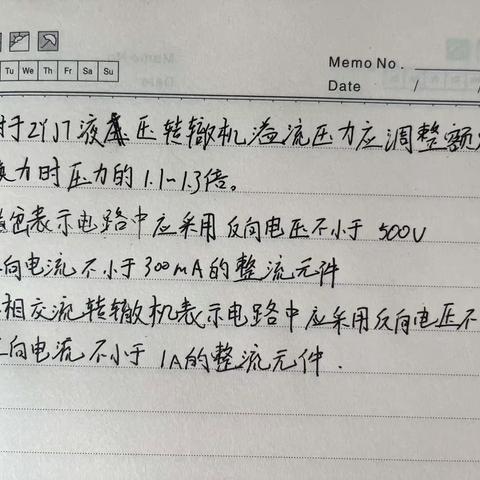 Memo No.
Tu We Th Fr Sa Su
Date / /
于ZYJ7液压转辙机溢流压力应调整额
力时压力的1.1~1.3倍。
表示电路中应采用反向电压不小于500V
向电流不小于300mA的整流元件
相交流转辙机表示电路中应采用反向电压不
向电流不小于1A的整流元件.